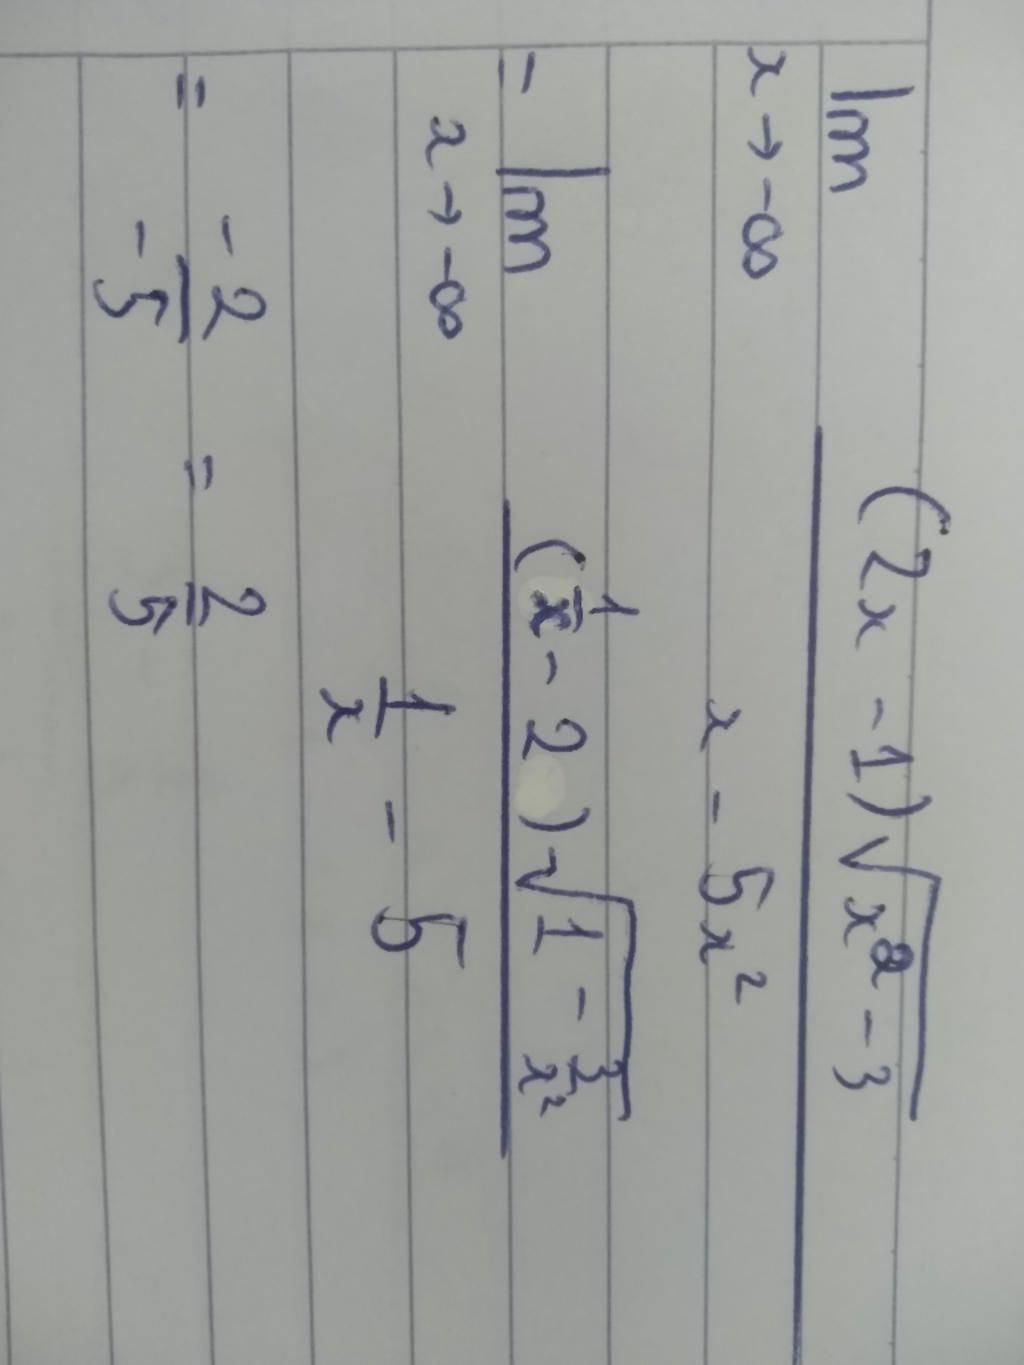 lim x → -∞ (2x - 1)√(x² - 3) / (x - 5x²)
= lim x → -∞ (1/x - 2)√(1 - 3/x²) / (1/x - 5)
= -2/-5 = 2/5